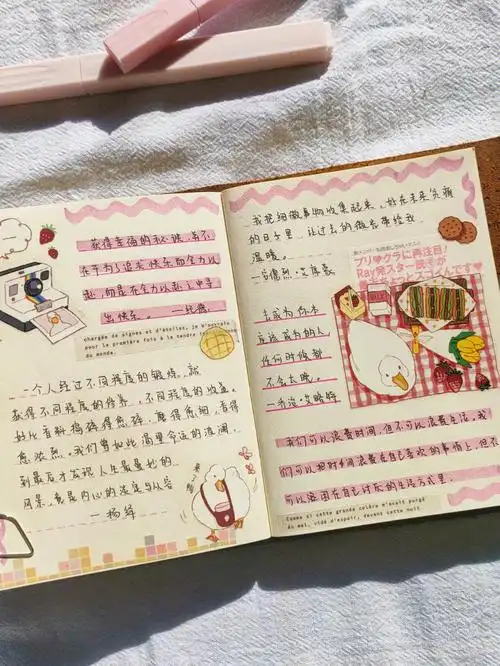 获得幸福的秘诀,并不
在于为了追求快乐而全力以
赴,而是在全力以赴之中寻
出快乐。 ——纪德
chargée de signes et d'étoiles, je m'ouvrais
pour la première fois à la tendre
du monde.
一个人经过不同程度的锻炼,就
获得不同程度的修养,不同程度的效益。
好比香料,捣得愈碎,磨得愈细,香得
愈浓烈。我们曾如此渴望命运的波澜,
到最后才发现:人生最曼妙的
风景,竟是内心的淡定与从容
—杨绛
我把细微事物收集起来,好在未来贫瘠
的日子里,让过去的微光带给我
温暖。
去成为你本
应该成为的人
任何时候都
不会太晚。
—乔治·艾略特
プリ♥グラに再注目!
我们可以浪费时间,但不可以浪费生活,我
们可以把时间浪费在自己喜欢的事情上,但不
可以沿用在自己讨厌的生活方式里.
Comme si cette grande colère m'avait purgé
du mal, vidé d'espoir, devant cette nuit